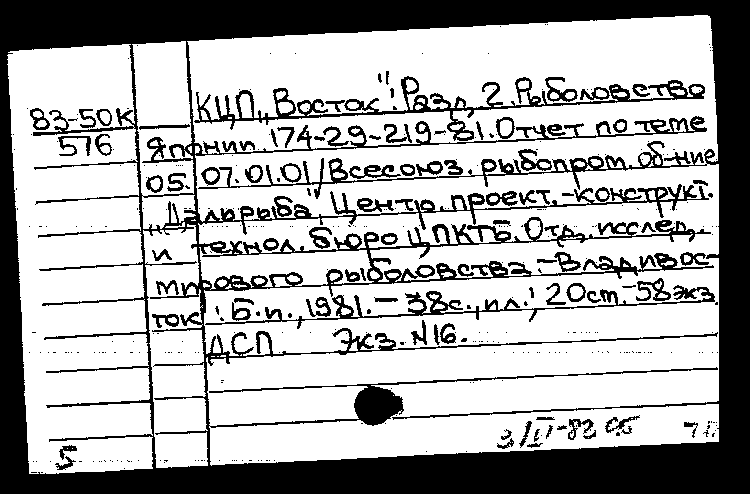 83-50К
576
КЦП „Восток". Разд. 2. Рыболовство
Японии. 174-29-219-81. Отчет по теме
05. 07.01.01/Всесоюз. рыбопром. об-ние
„Дальрыба", Центр. проект.-конструкт.
и технол. бюро ЦПКТБ. Отд. исслед.
мирового рыболовства.-Владивос-
ток: Б.и., 1981.-38с., ил.; 20см.-58экз
ДСП. Экз. №16.
3/II-83 сб
5